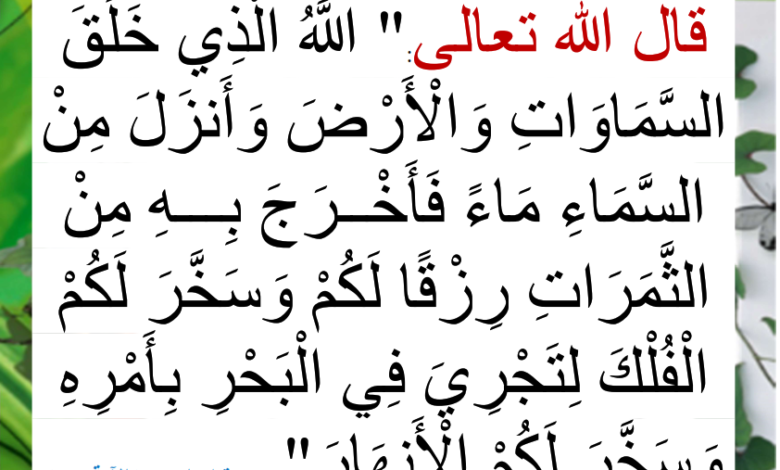 قال الله تعالى: " اللَّهُ الَّذِي خَلَقَ
السَّمَاوَاتِ وَالْأَرْضَ وَأَنزَلَ مِنْ
السَّمَاءِ مَاءً فَأَخْــرَجَ بِــــهِ مِنْ
الثَّمَرَاتِ رِزْقًا لَكُمْ وَسَخَّرَ لَكُمْ
الْفُلْكَ لِتَجْرِيَ فِي الْبَحْرِ بِأَمْرِهِ
وَسَخَّرَ لَكُمْ الْأَنهَارَ "